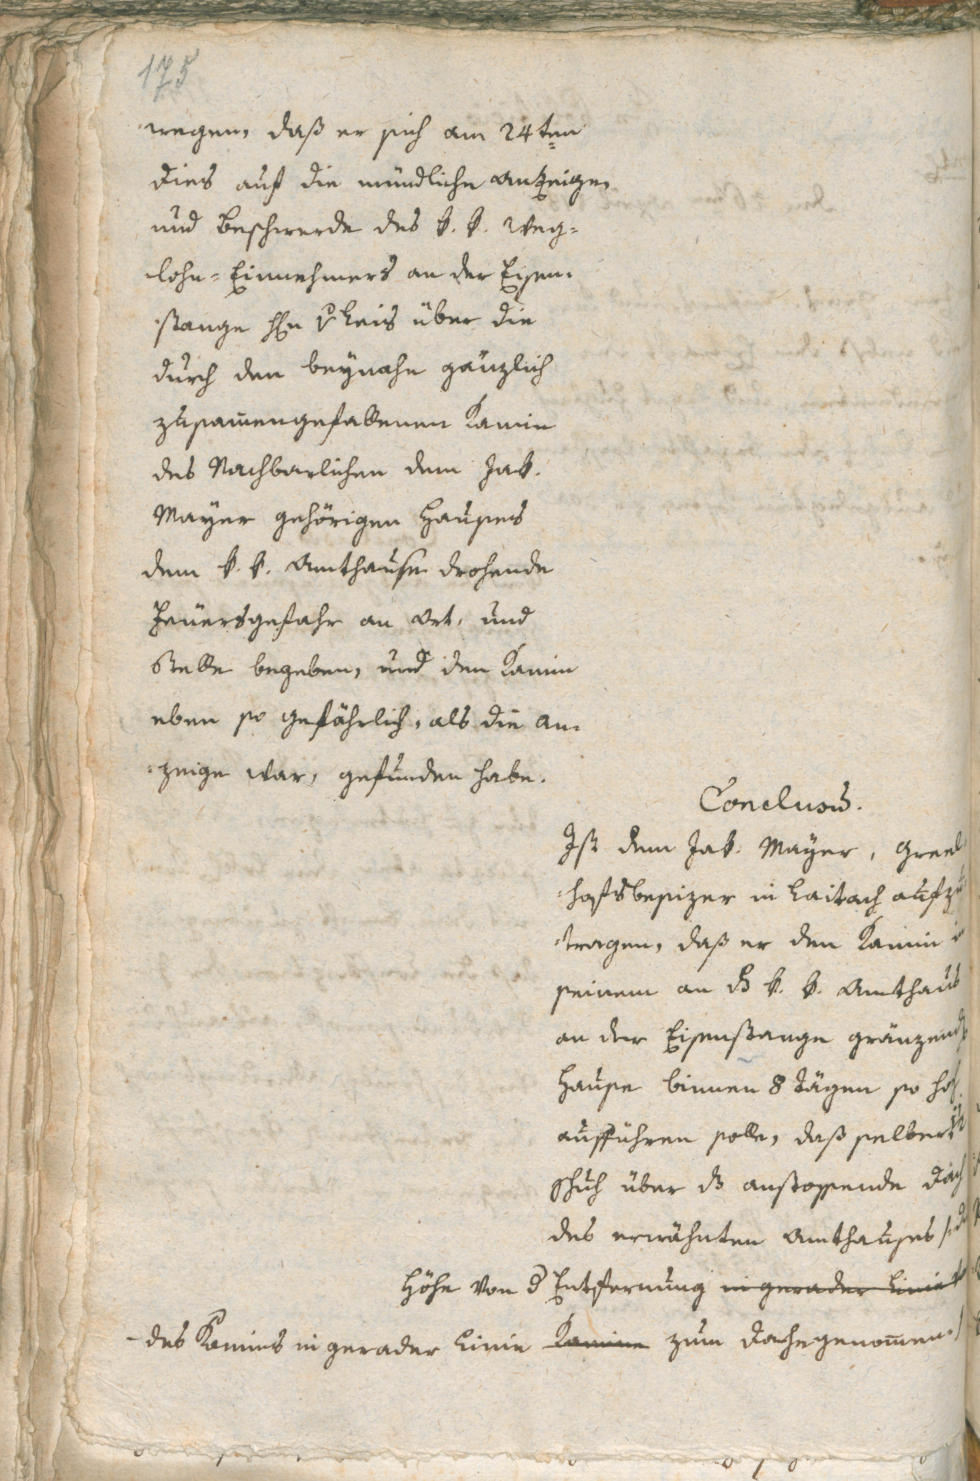 175
wegen, daß er sich am 24ten
dies auf die mündliche Anzeige,
und Beschwerde des k. k. Weg-
lohn-Einnehmers an der Eisen-
stange über die
durch den beynahe gänzlich
zusam̄engefallenen Kamin
des Nachbarlichen dem Jak.
Mayer gehörigen Hauses
dem k. k. Amthause drohende
Feuersgefahr an Ort, und
Stelle begeben, und den Kamin
eben so gefährlich, als die An-
zeige war, gefunden habe.
Conclusum.
Ist dem Jak. Mayer,
hofsbesizer in Laitach aufzu
tragen, daß er den Kamin in
seinem an ds k. k. Amthaus
an der Eisenstange gränzend
Hause binnen 8 Tägen so hoch
aufführen solle, daß selber
Schuh über ds anstossende Dach
des erwähnten Amthauses
Höhe von d Entfernung in gerader Linie
des Kamins in gerader Linie Kamine zum Dache genom̄en